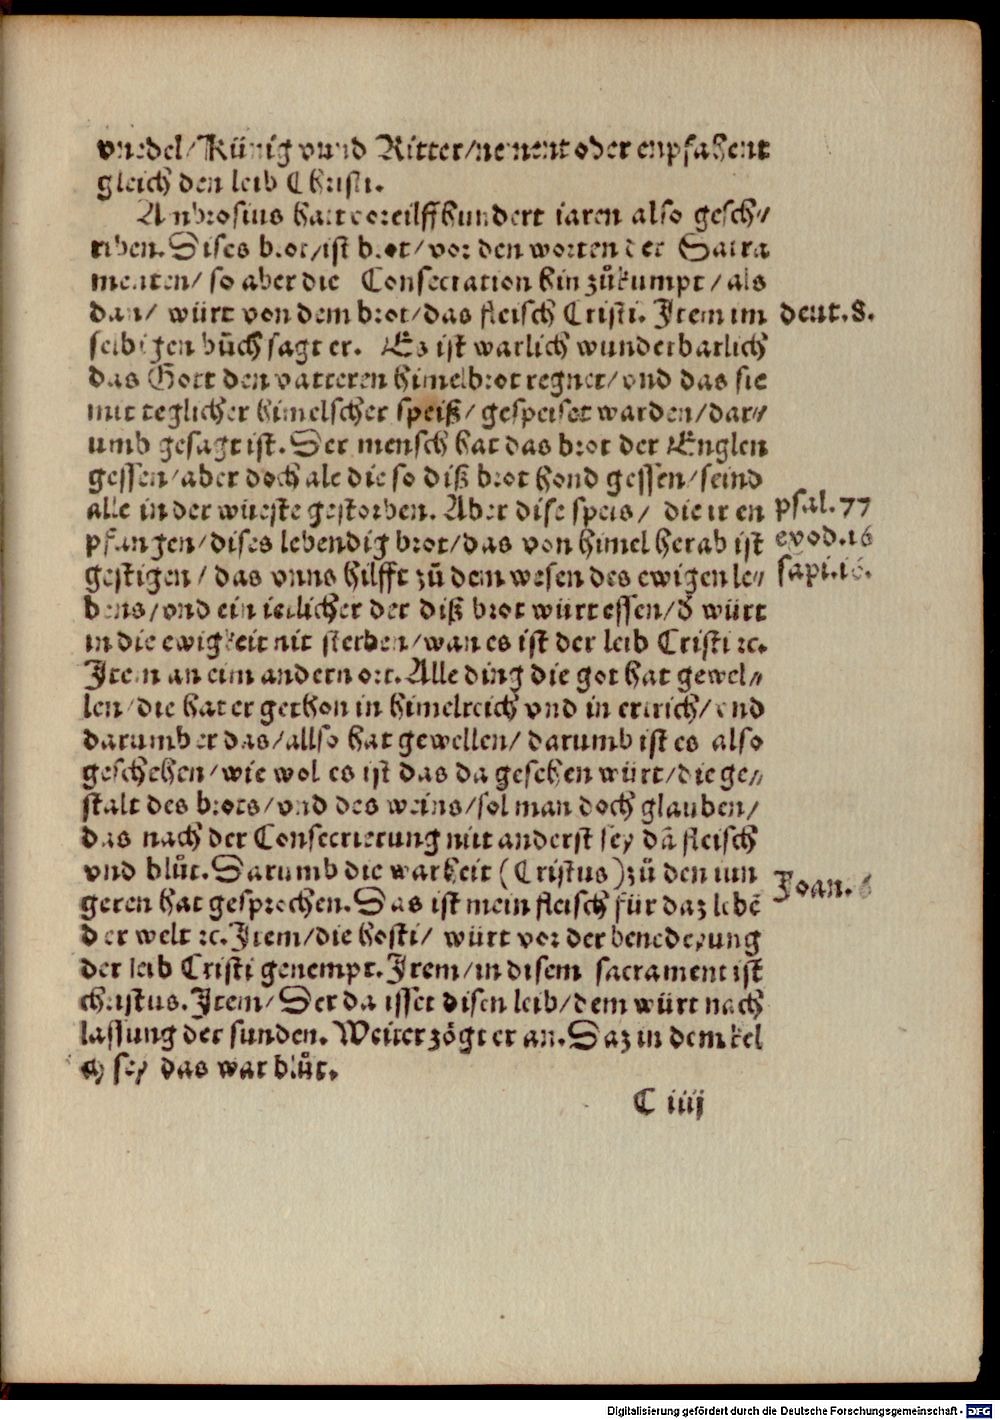 vnedel/ Künig vnnd Ritter/ nement oder enpfahent
gleich den leib Christi.
Anbrosius hatt vor eilffhundert iaren also gesch⸗
riben. Dises brot/ ist brot/ vor den worten der Sacra
menten/ so aber die Consecration hin zůkumpt/ als
dan/ würt von dem brot/ das fleisch Cristi. Item im
deut. 8.
selbigen bůch sagt er. Es ist warlich wunderbarlich
das Gott den vatteren himelbrot regnet/ vnd das sie
mit teglicher himelscher speiß/ gespeiset warden/ dar⸗
umb gesagt ist. Der mensch hat das brot der Englen
gessen/ aber doch ale die so diß brot hond gessen/ seind
alle in der wüeste gestorben. Aber dise speis/ die ir en
psal. 77
pfangen/ dises lebendig brot/ das von himel herab ist
exod. 16
gestigen/ das vnns hilfft zů dem wesen des ewigen le⸗
sapi. 16.
bens/ vnd ein ietlicher der diß brot würt essen/ d̕ würt
in die ewigkeit nit sterben/ wan es ist der leib Cristi ꝛc.
Item an eim andern ort. Alle ding die got hat gewel⸗
len/ die hat er gethon in himelreich vnd in ertrich/ vnd
darumb er das/ allso hat gewellen/ darumb ist es also
geschehen/ wie wol es ist das da gesehen würt/ die ge⸗
stalt des brots/ vnd des weins/ sol man doch glauben/
das nach der Consecrierung nit anderst sey dã fleisch
vnd blůt. Darumb die warheit (Cristus) zů den iun
Joan. 6
geren hat gesprochen. Das ist mein fleisch für daz lebẽ
der welt ꝛc. Item/ die hosti/ würt vor der benedeyung
der leib Cristi genempt. Item/ in disem sacrament ist
christus. Item/ Der da isset disen leib/ dem würt nach
lassung der sunden. Weiter zögt er an. Daz in dem kel
ch sey das war blůt.
C iiij
Digitalisierung gefördert durch die Deutsche Forschungsgemeinschaft - DFG